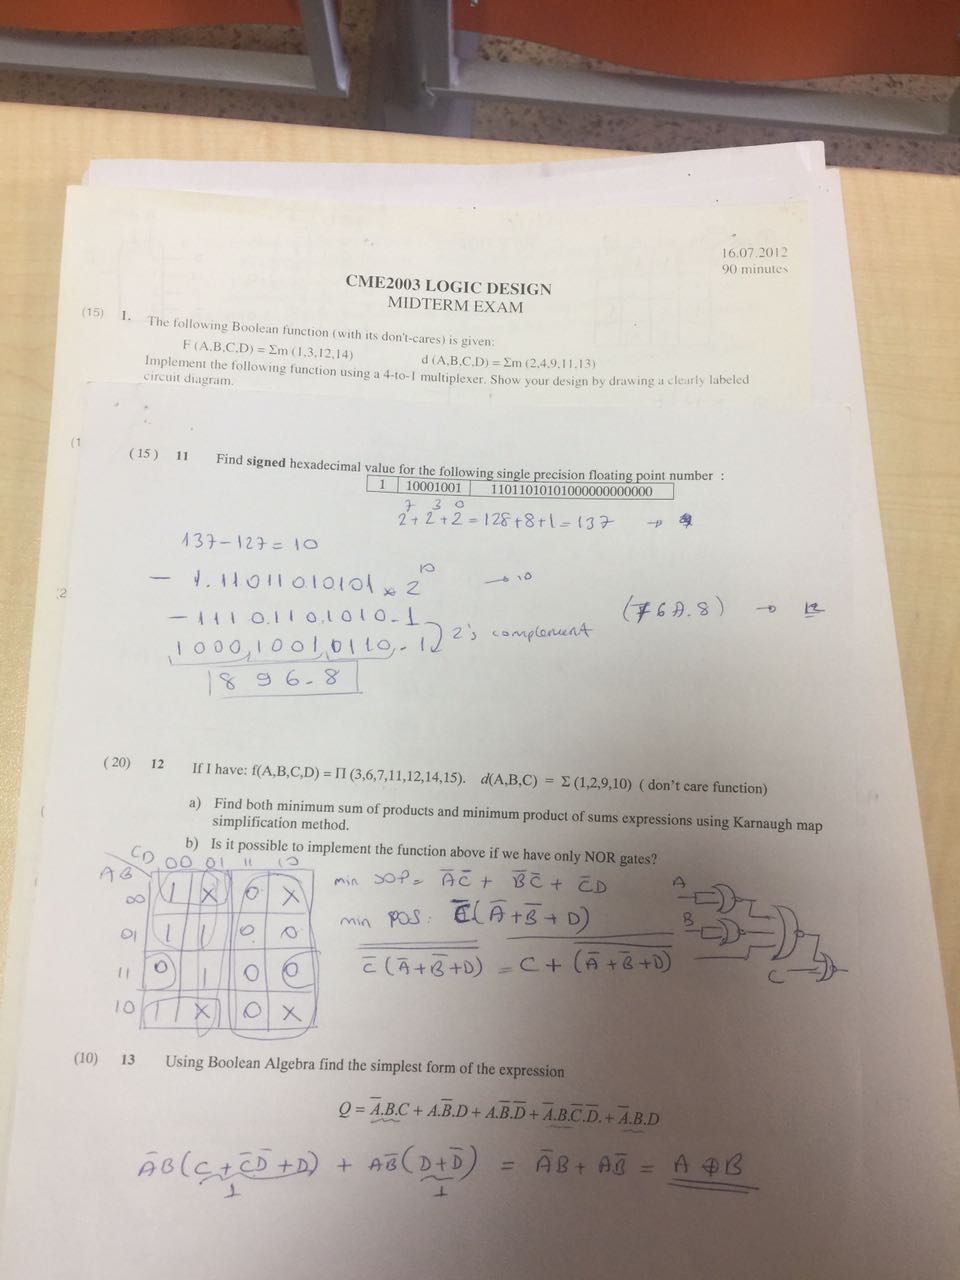 16.07.2012
90 minutes
CME2003 LOGIC DESIGN
MIDTERM EXAM
(15) 1. The following Boolean function (with its don't-cares) is given:
F (A,B,C,D) = Σm (1,3,12,14) d (A,B,C,D) = Σm (2,4,9,11,13)
Implement the following function using a 4-to-1 multiplexer. Show your design by drawing a clearly labeled
circuit diagram.
(1
(15) 11 Find signed hexadecimal value for the following single precision floating point number :
1 10001001 11011010101000000000000
2⁷+2³+2⁰ = 128+8+1 = 137 →
137-127 = 10
:2
- 1.11011010101 × 2¹⁰ → 10
- 1110110,1010.1 (76A.8) → 12
1000,1001,0110.1 2's complement
896.8
(20) 12 If I have: f(A,B,C,D) = Π (3,6,7,11,12,14,15). d(A,B,C) = Σ (1,2,9,10) ( don't care function)
a) Find both minimum sum of products and minimum product of sums expressions using Karnaugh map
simplification method.
b) Is it possible to implement the function above if we have only NOR gates?
CD 00 01 11 10
AB
00 1 X 0 X
01 1 1 0 0
11 0 1 0 0
10 1 X 0 X
min SOP = A̅C̅ + B̅C̅ + C̅D
min POS: C̅(A̅+B̅+D)
C̅(A̅+B̅+D) = C + (A̅+B̅+D)
A
B
C
(10) 13 Using Boolean Algebra find the simplest form of the expression
Q = A̅.B.C + A.B̅.D + A.B̅.D̅ + A̅.B.C̅.D̅. + A̅.B.D
A̅B(C+C̅D̅+D) + AB̅(D+D̅) = A̅B + AB̅ = A⊕B
1 1